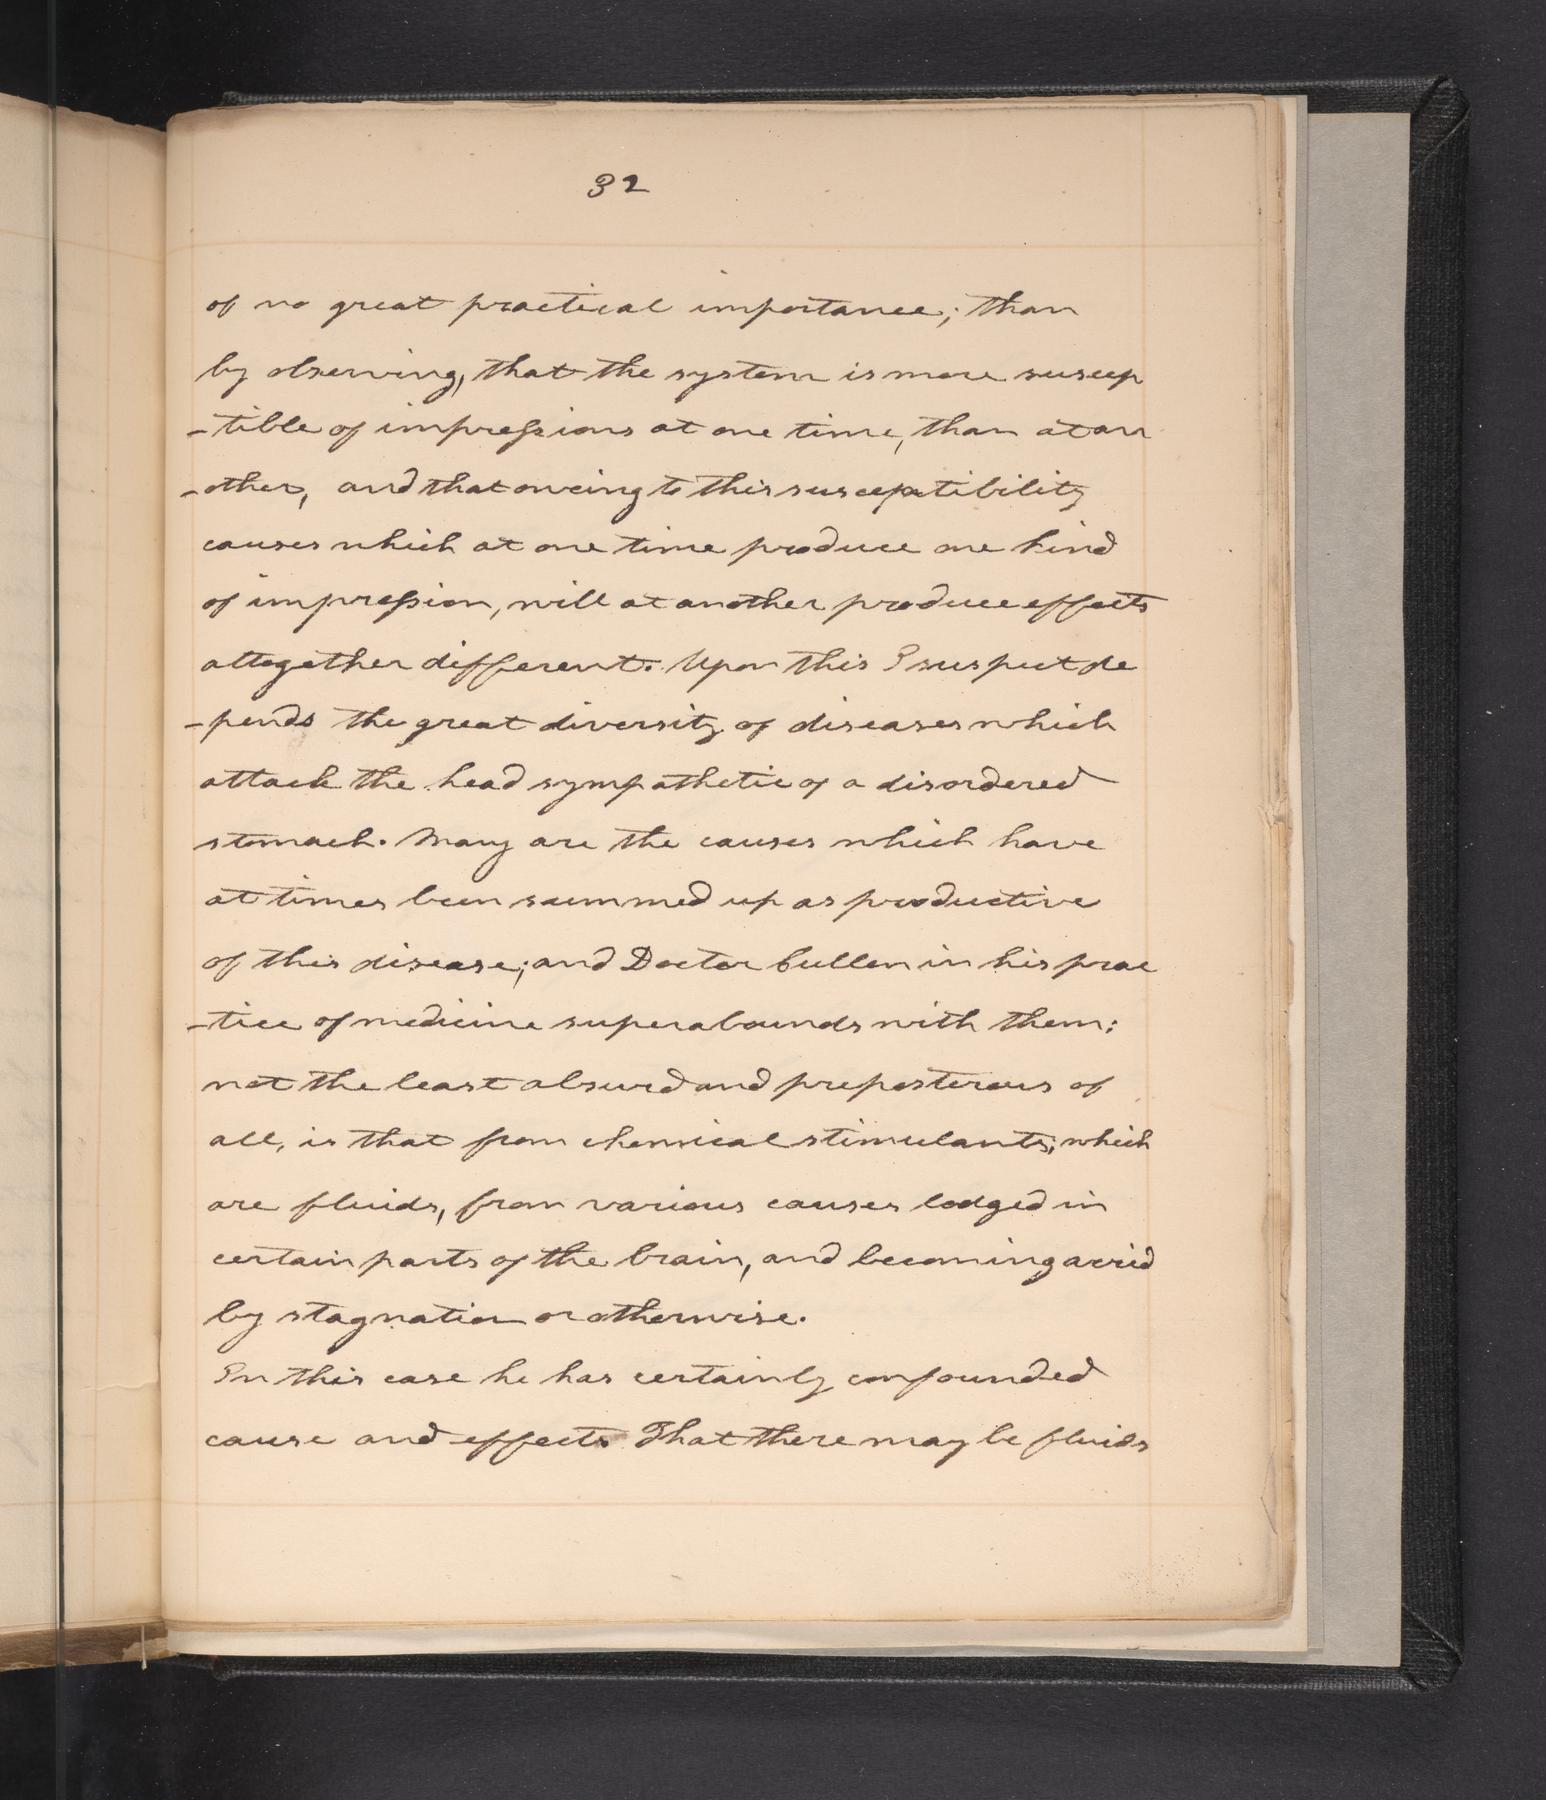 32
of no great practical importance; than
by observing, that the system is more suscep
-tible of impressions at one time, than at an
-other, and that owing to this susceptibility
causes which at one time produce one kind
of impression, will at another produce effects
altogether different. Upon this I suspect de
-pends the great diversity of diseases which
attack the head sympathetic of a disordered
stomach. Many are the causes which have
at times been summed up as productive
of this disease; and Doctor Cullen in his prac
-tice of medicine superabounds with them;
not the least absurd and preposterous of
all, is that from chemical stimulants; which
are fluids, from various causes lodged in
certain parts of the brain, and becoming acrid
by stagnation or otherwise.
In this case he has certainly confounded
cause and effects That there may be fluids